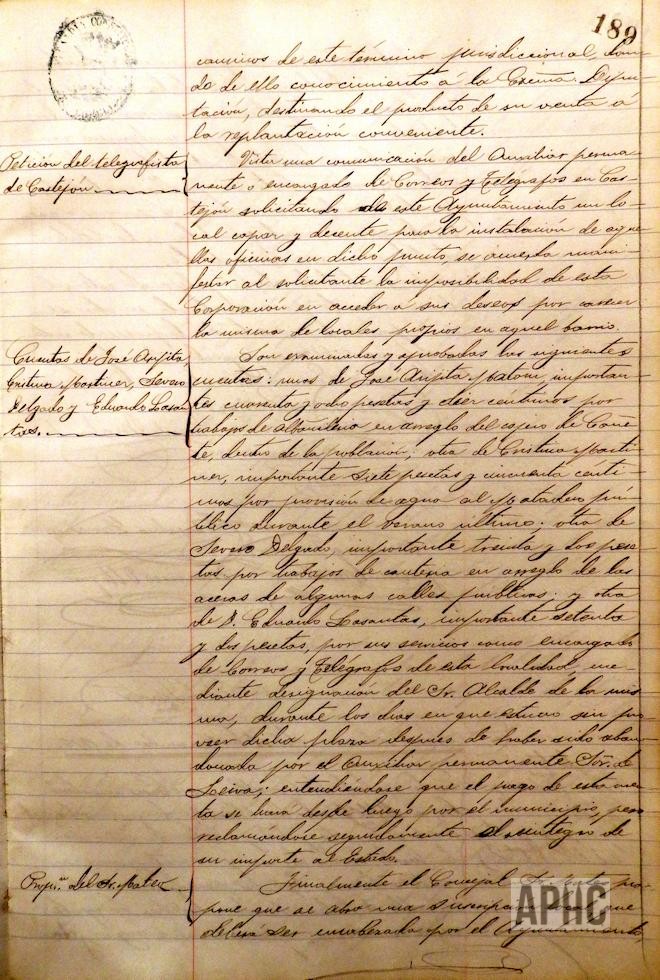 189
caminos de este término jurisdiccional, dan-
do de ello conocimiento á la Excma Dipu-
tación, destinando el producto de su venta á
la replantación conveniente.
Petición del telegrafista
de Castejón
Vista una comunicación del Auxiliar perma-
nente o encargado de Correos y Telégrafos en Cas-
tejón solicitando de este Ayuntamiento un lo-
cal capaz y decente para la instalación de aque-
llas oficinas en dicho punto, se acuerda mani-
festar al solicitante la imposibilidad de esta
Corporación en acceder á sus deseos por carecer
la misma de locales propios en aquel barrio.
Cuentas de José Arpita,
Cristina Martinez, Severo
Delgado y Eduardo Lasan-
tas.
Son examinadas y aprobadas las siguientes
cuentas: una de José Arpita Matoni, importan-
tes cuarenta y ocho pesetas y diez centimos por
trabajos de albañileria en arreglo del
dentro de la población; otra de Cristina Marti-
nez, importante siete pesetas y cincuenta cénti-
mos por provisión de agua al Matadero pú-
blico durante el verano último; otra de
Severo Delgado, importante treinta y dos pese-
tas por trabajos de canteria en arreglo de las
aceras de algunas calles públicas; y otra
de D. Eduardo Lasantas, importante setenta
y dos pesetas, por sus servicios como encargado
de Correos y Telégrafos de esta localidad me-
diante designación del Sr. Alcalde de la mis-
ma, durante los dias en que estuvo sin pro-
veer dicha plaza despues de haber sido aban-
donada por el Auxiliar permanente Sor. de
Leiva; entendiendose que el pago de esta cuen-
ta se hará desde luego por el municipio, pero
reclamándose seguidamente el reintegro de
su importe al Estado.
Propn. del Sr. Mateo
Finalmente el Concejal Sr. Mateo pro-
pone que se abra una que
deberá ser encabezada por el Ayuntamiento
APHC